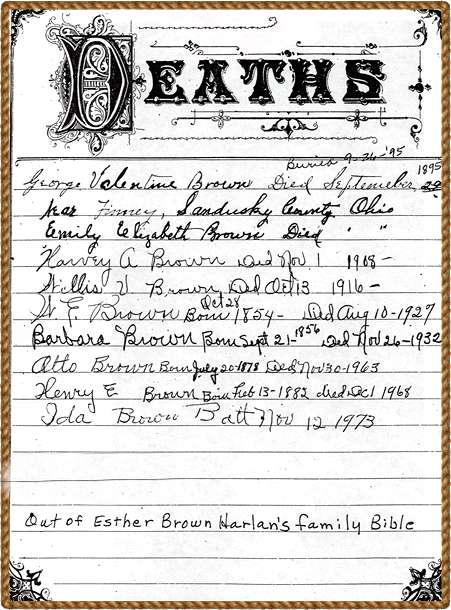 DEATHS
Buried 9-26-'95
George Valentine Brown Died September, 1895
near Finney, Sandusky County Ohio
Emily Elizabeth Brown Died " "
Harvey A Brown Died Nov. 1 1908-
Willis V Brown Died Oct 13 1916-
W. E. Brown Born Oct 28 1854- Died Aug 10-1927
Barbara Brown Born Sept 21-1856 Died Nov 26-1932
Otto Brown Born July 20-1878 Died Nov 30-1963
Henry E Brown Born Feb 13-1882 died Dec 1 1968
Ida Brown Batt Nov 12 1973
Out of Esther Brown Harlan's family Bible